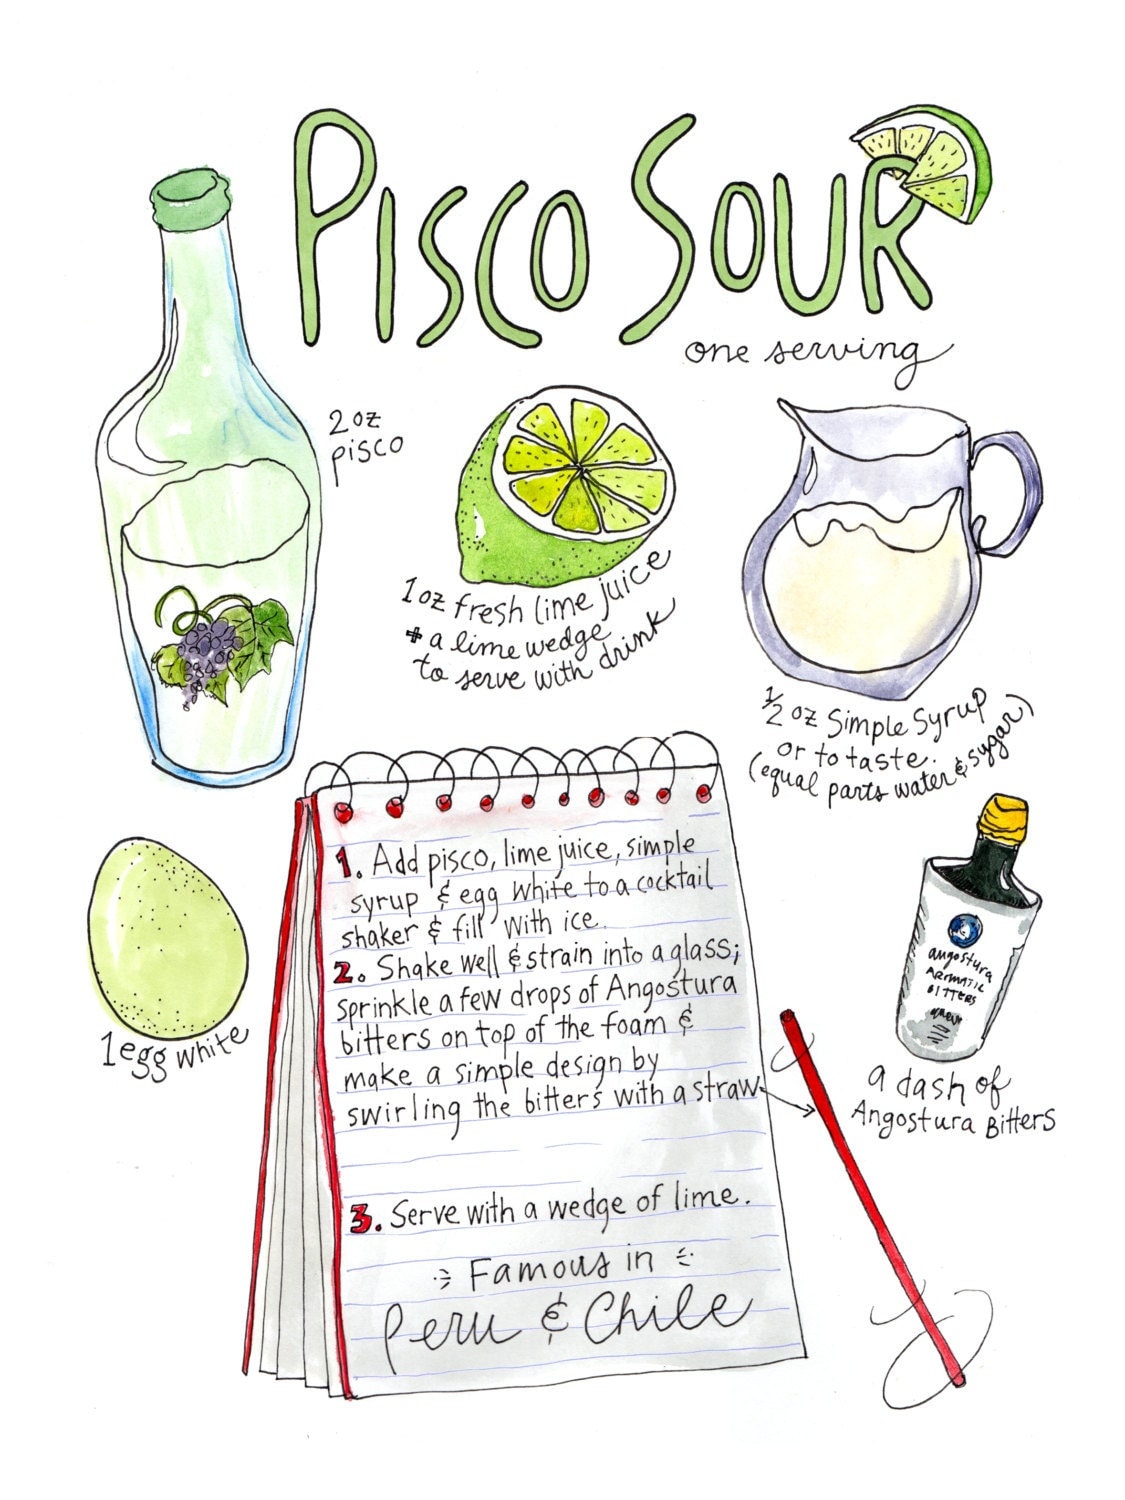 PISCO SOUR
one serving
2 oz
pisco
1 oz fresh lime juice
+ a lime wedge
to serve with drink
1/2 oz Simple Syrup
or to taste.
(equal parts water & sugar)
1. Add pisco, lime juice, simple
syrup & egg white to a cocktail
shaker & fill with ice.
2. Shake well & strain into a glass;
sprinkle a few drops of Angostura
bitters on top of the foam &
make a simple design by
swirling the bitters with a straw
3. Serve with a wedge of lime.
Famous in
Peru & Chile
1 egg white
angostura
AROMATIC
BITTERS
a dash of
Angostura Bitters